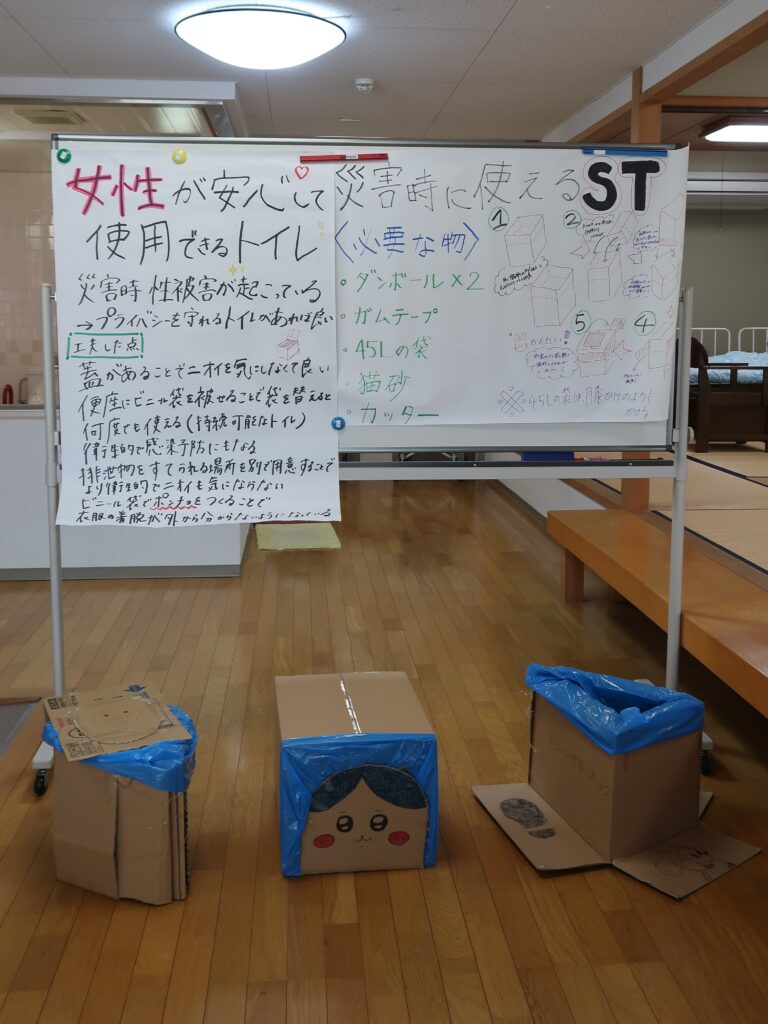 女性が安心して
使用できるトイレ
災害時 性被害が起こっている
→プライベシーを守れるトイレがあれば良い
工夫した点
蓋があることでニオイを気にしなくて良い
便座にビニール袋を被せることで袋を替えると
何度でも使える(持続可能なトイレ)
衛生的で感染予防にもなる
排泄物をすてられる場所を別で用意することで
より衛生的でニオイも気にならない
ビニール袋でポンチョをつくることで
衣服の着脱が外から分からないようになっている
災害時に使えるST
〈必要な物〉
・ダンボール×2
・ガムテープ
・45Lの袋
・猫砂
・カッター
①
②
⑤
④
かんたん!
※45Lの袋は
かける